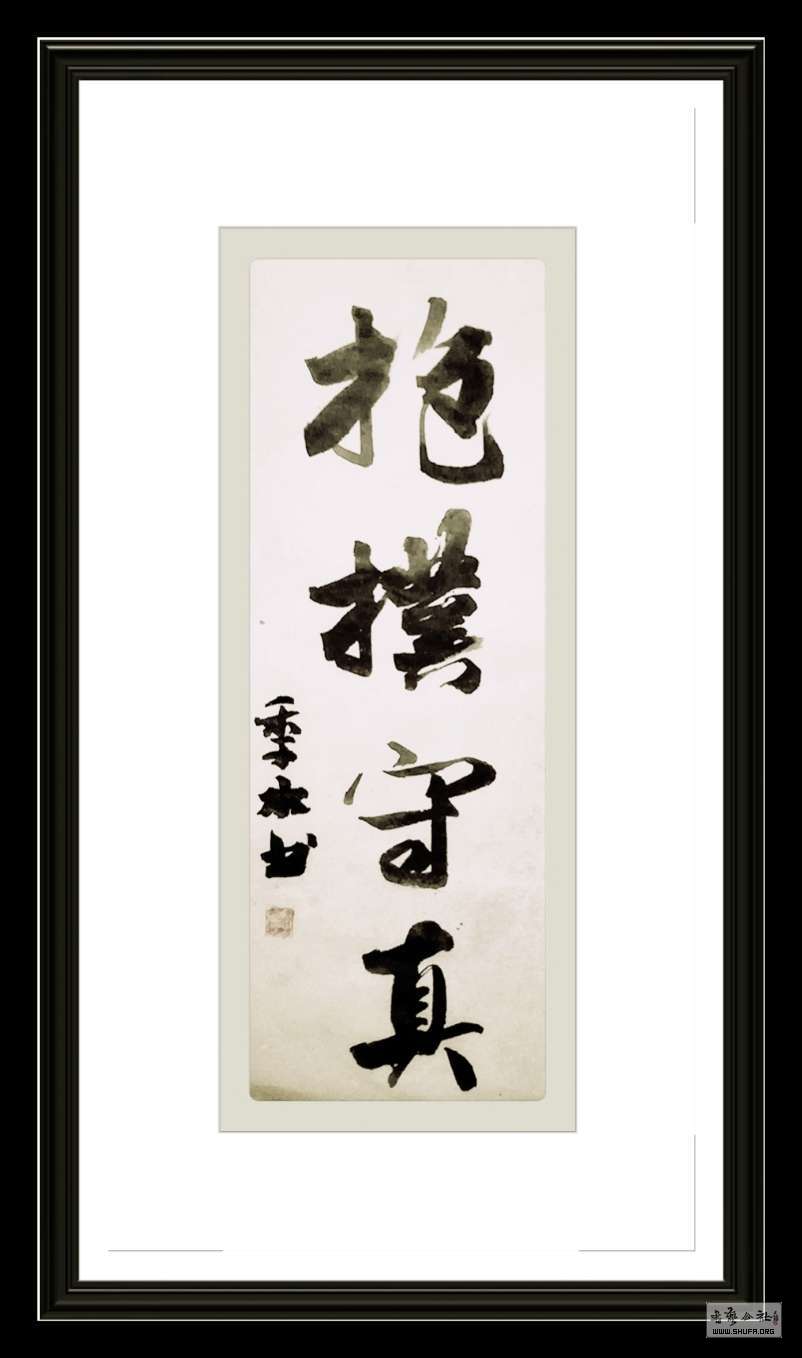 抱撲守真
季林书
书艺公社
WWW.SHUFA.ORG